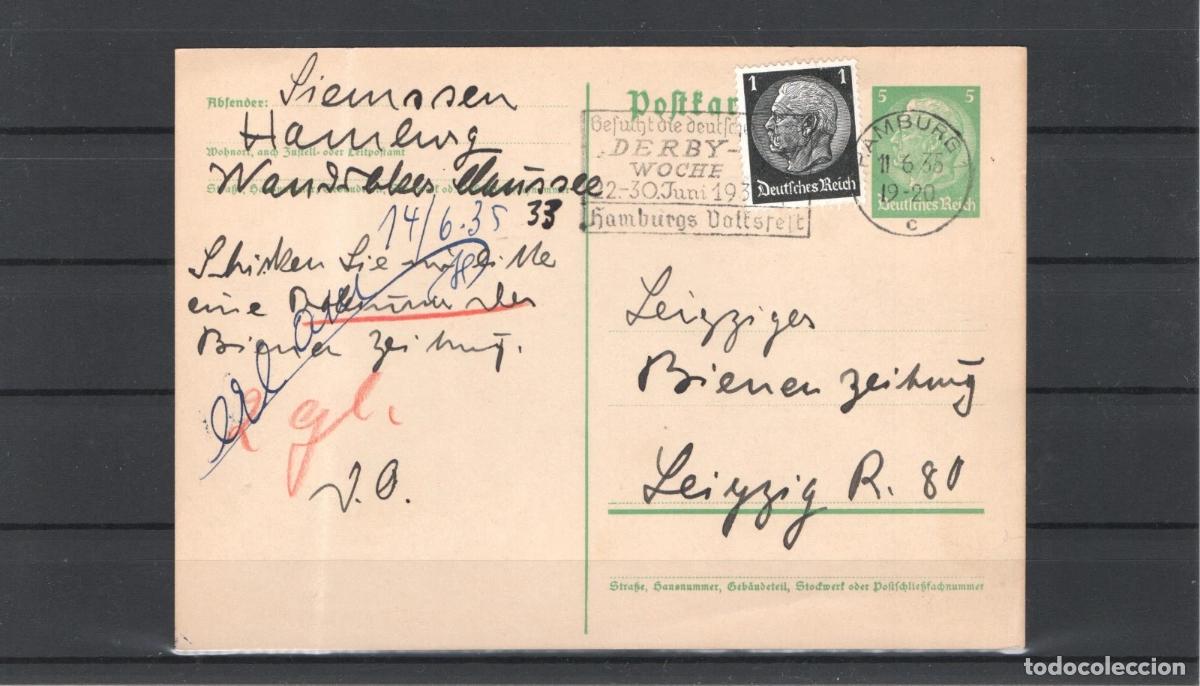 Absender: Siemssen
Hamburg
Wohnort, auch Zustell- oder Leitpostamt
Wandsbeker Chaussee
33
14/6.35
Schicken Sie mir bitte
eine Probenummer der
Bienen Zeitung.
gl.
J.O.
Postkar
1 1
Deutsches Reich
5 5
Deutsches Reich
Besucht die deutsche
DERBY-
WOCHE
22-30.Juni 193
Hamburgs Volksfest
HAMBURG
11.6.35
19-20
c
Leipziger
Bienen Zeitung
Leipzig R. 80
Straße, Hausnummer, Gebäudeteil, Stockwerk oder Postschließfachnummer
todocoleccion